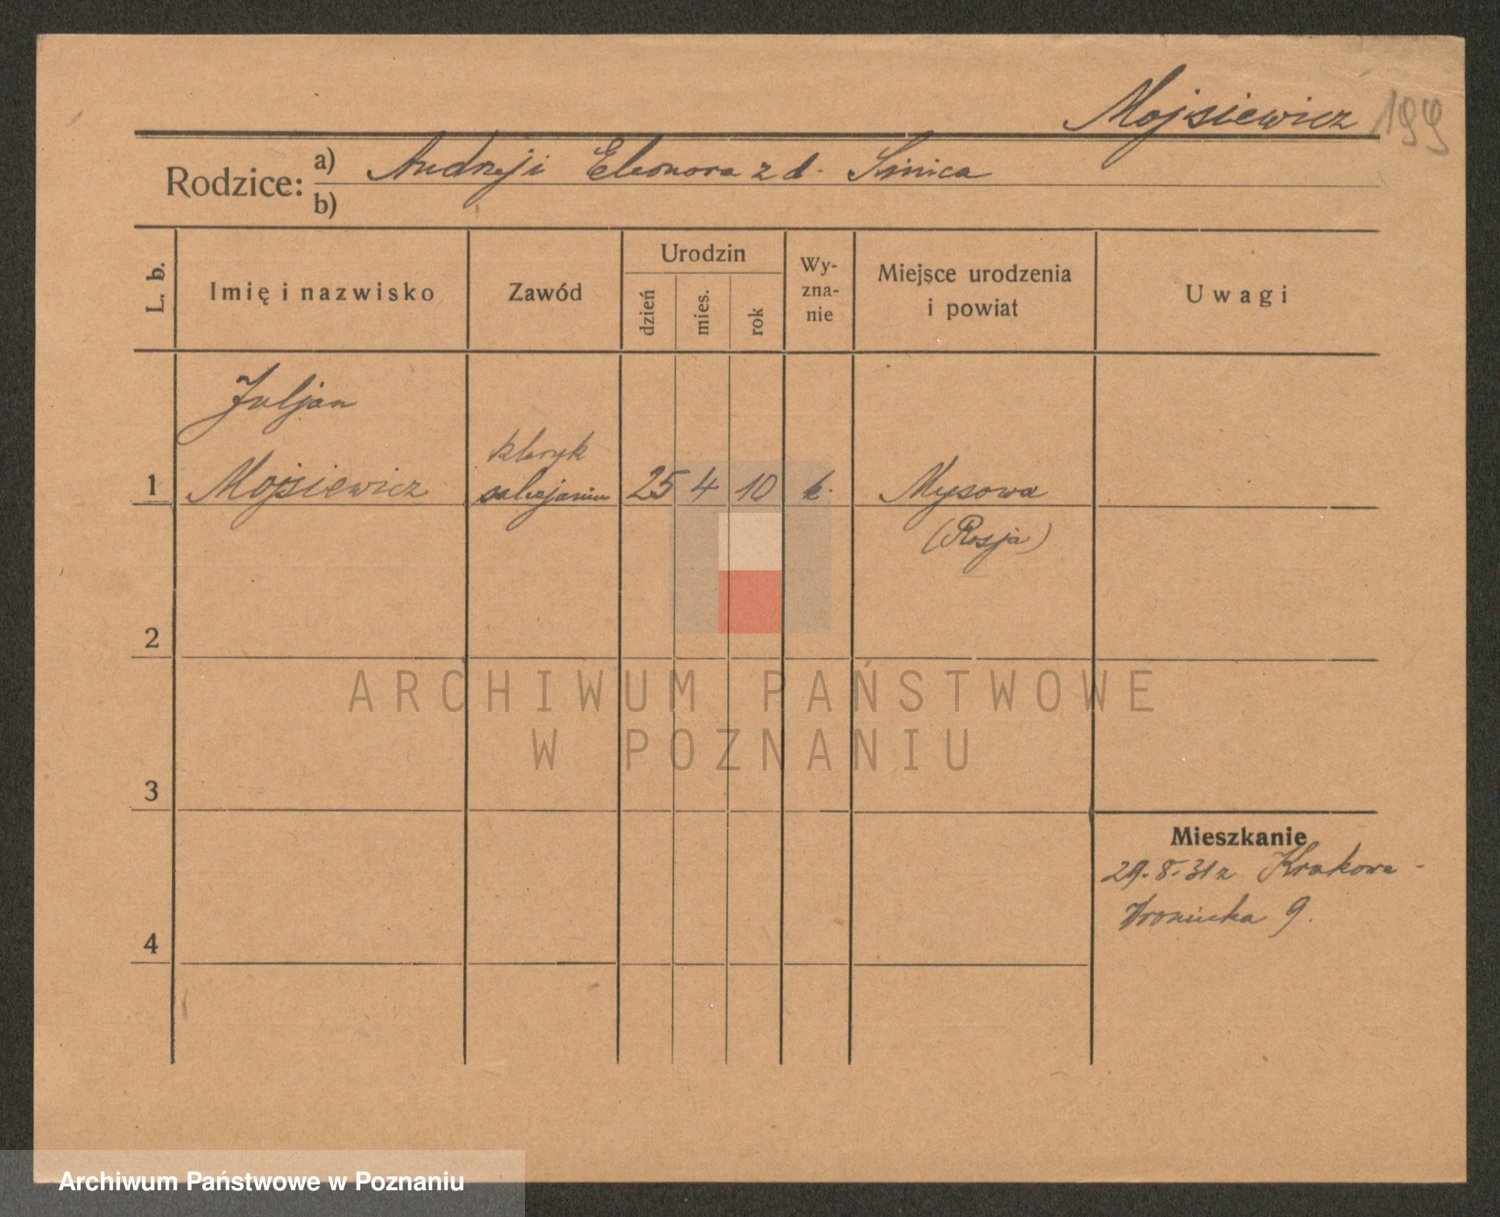 Mojsiewicz 199
Rodzice: a) Andrzej i Eleonora z d. Sinica
b)
L. b. Imię i nazwisko Zawód Urodzin dzień mies. rok Wy-zna-nie Miejsce urodzenia i powiat Uwagi
Juljan
kleryk
1 Mojsiewicz salezjanin 25 4 10 k. Mysowa
(Rosja)
2
ARCHIWUM PAŃSTWOWE
W POZNANIU
3
Mieszkanie
29.8.31 z Krakowa -
Wroniecka 9.
4
Archiwum Państwowe w Poznaniu